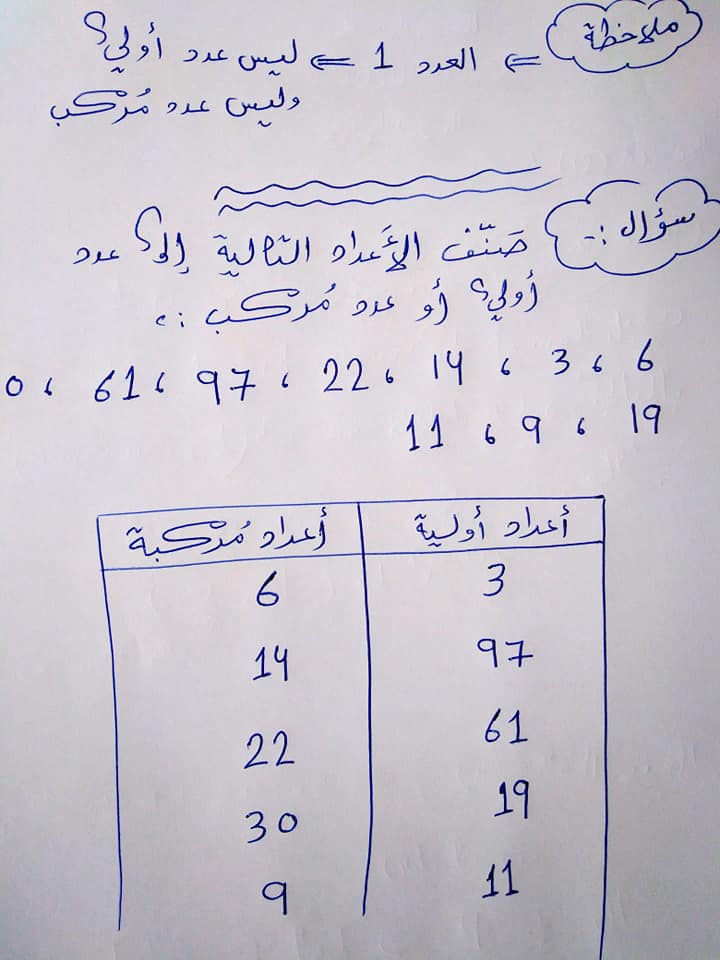 ملاحظة ⇐ العدد 1 ⇐ ليس عدد أولي
وليس عدد مُركب
سؤال :- صَنّف الأَعداد التالية إلى عدد
أولي أو عدد مُركب :-
6 ، 3 ، 14 ، 22 ، 97 ، 61 ، 0
19 ، 9 ، 11
أعداد أولية أعداد مُركبة
3 6
97 14
61 22
19 30
11 9